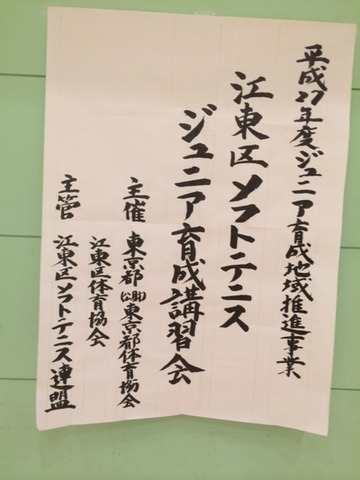 平成27年度ジュニア育成地域推進事業
江東区ソフトテニス
ジュニア育成講習会
主催 東京都 (公財)東京都体育協会
江東区体育協会
主管 江東区ソフトテニス連盟